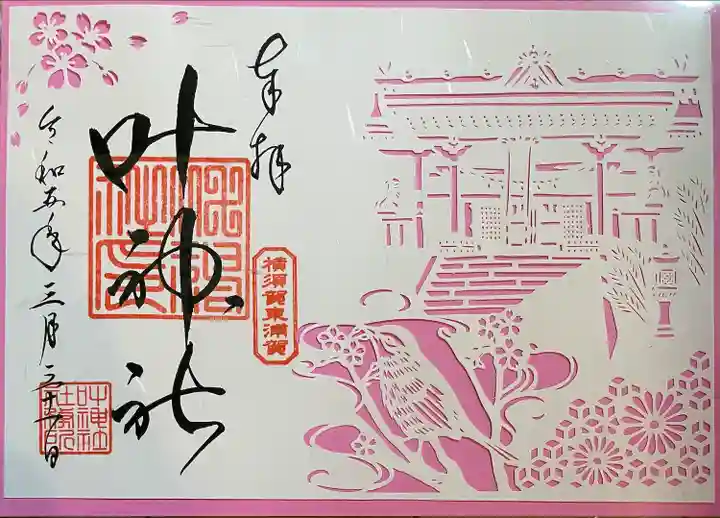 奉拝
叶神社
横須賀東浦賀
令和五年三月三十一日
叶神社
社務所